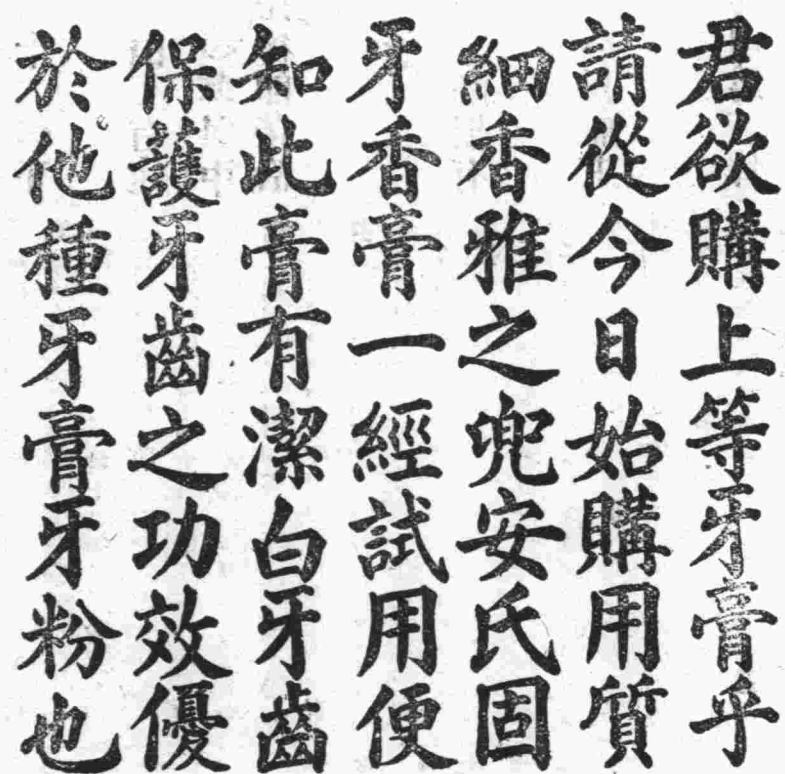 君欲購上等牙膏乎
請從今日始購用質
細香雅之兜安氏固
牙香膏一經試用便
知此膏有潔白牙齒
保護牙齒之功效優
於他種牙膏牙粉也